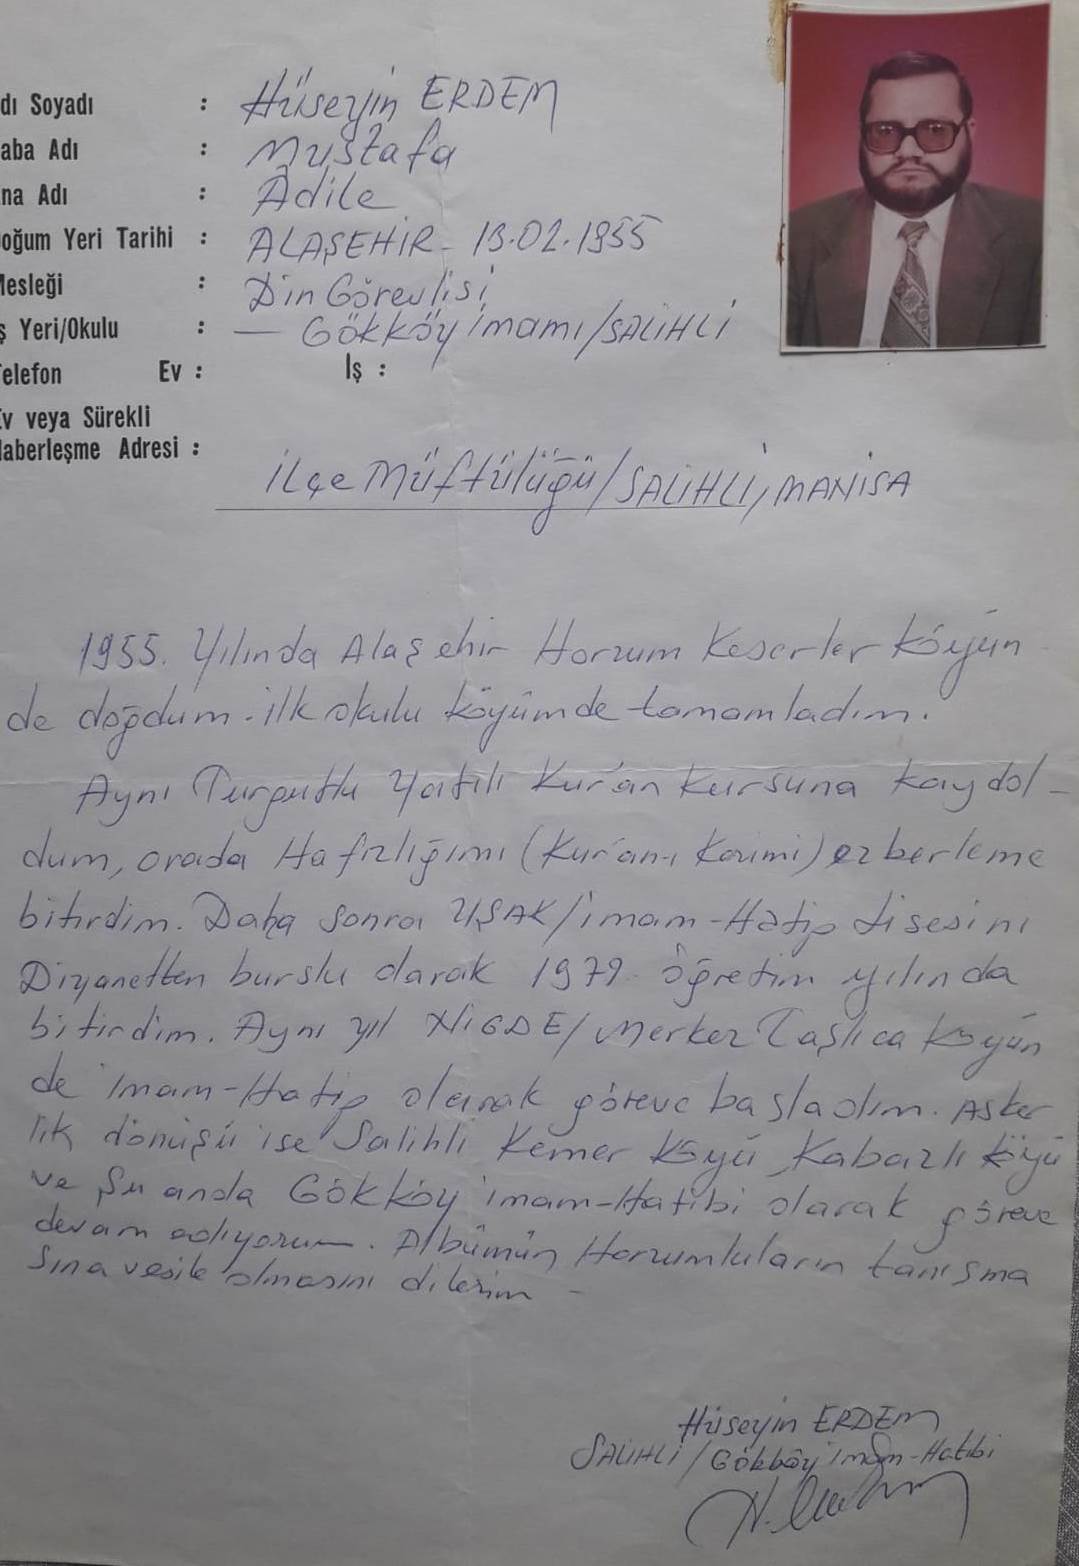 dı Soyadı : Hüseyin ERDEM
aba Adı : Mustafa
na Adı : Adile
oğum Yeri Tarihi : ALAŞEHİR - 13.02.1955
Mesleği : Din Görevlisi
ş Yeri/Okulu : — Gökköy imamı/SALİHLİ
elefon Ev : İş :
Ev veya Sürekli
Haberleşme Adresi :
İlçe Müftülüğü/SALİHLİ/MANİSA
1955. Yılında Alaşehir Horzum Keserler Köyün
de doğdum. ilk okulu köyümde tamamladım.
Aynı Turgutlu Yatılı Kur'an Kursuna kaydol-
dum, orada Hafızlığımı (Kur'an-ı Kerimi) ezberleme
bitirdim. Daha sonra UŞAK/imam-Hatip Lisesini
Diyanetten burslu olarak 1979. öğretim yılında
bitirdim. Aynı yıl NİGDE/Merkez Taşlıca Köyün
de imam-Hatip olarak göreve başladım. Asker
lik dönüşü ise Salihli Kemer Köyü, Kabazlı köyü
ve Şu anda Gökköy imam-Hatibi olarak göreve
devam ediyorum. Albümün Horzumluların tanışma
sına vesile olmasını dilerim -
Hüseyin ERDEM
SALİHLİ/Gökköy imam-Hatibi